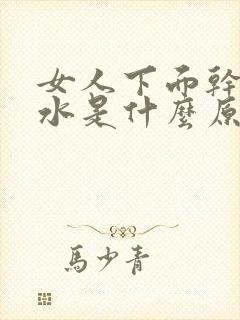 女人下面幹
水是什麼原
馬少青